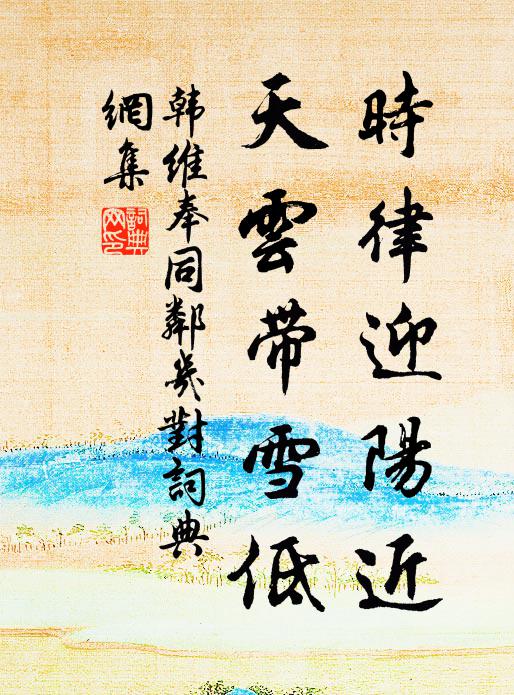 時律迎陽近
天雲帶雪低
韩維奉同鄰幾對詞典
網集
詞典網印